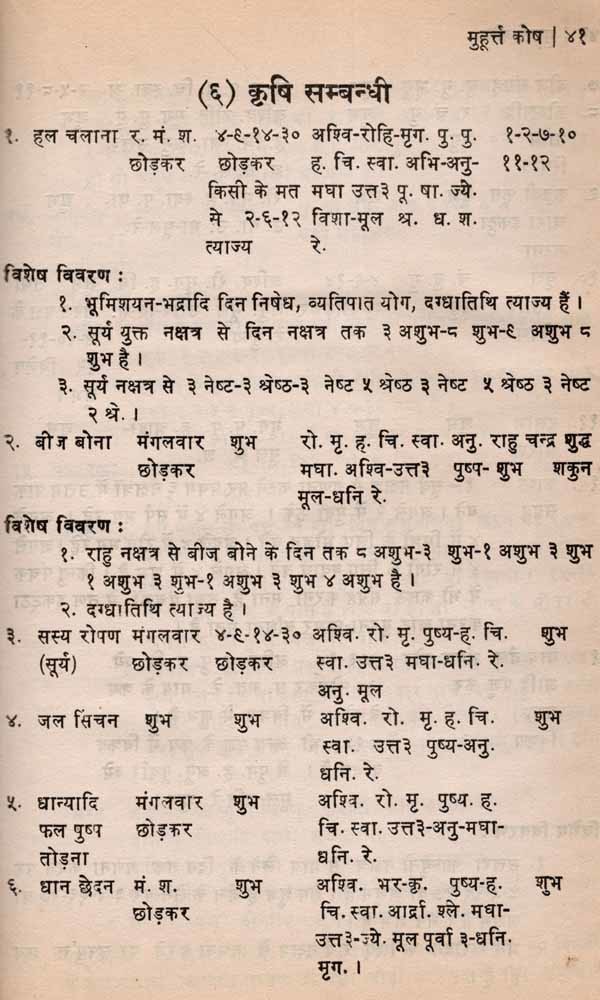 मुहूर्त्त कोष | ४१
(६) कृषि सम्बन्धी
१. हल चलाना र. मं. श. ४-९-१४-३० अश्वि-रोहि-मृग. पु. पु. १-२-७-१०
छोड़कर छोड़कर ह. चि. स्वा. अभि-अनु- ११-१२
किसी के मत मघा उत्त३ पू. षा. ज्ये.
मे २-६-१२ विशा-मूल श्र. ध. श.
त्याज्य रे.
विशेष विवरण :
१. भूमिशयन-भद्रादि दिन निषेध, व्यतिपात योग, दग्धातिथि त्याज्य हैं ।
२. सूर्य युक्त नक्षत्र से दिन नक्षत्र तक ३ अशुभ-८ शुभ-९ अशुभ ८
शुभ है ।
३. सूर्य नक्षत्र से ३ नेष्ट-३ श्रेष्ठ-३ नेष्ट ५ श्रेष्ठ ३ नेष्ट ५ श्रेष्ठ ३ नेष्ट
२ श्रे. ।
२. बीज बोना मंगलवार शुभ रो. मृ. ह. चि. स्वा. अनु. राहु चन्द्र शुद्ध
छोड़कर मघा. अश्वि-उत्त३ पुष्प- शुभ शकुन
मूल-धनि रे.
विशेष विवरण :
१. राहु नक्षत्र से बीज बोने के दिन तक ८ अशुभ-३ शुभ-१ अशुभ ३ शुभ
१ अशुभ ३ शुभ-१ अशुभ ३ शुभ ४ अशुभ है ।
२. दग्धातिथि त्याज्य है ।
३. सस्य रोपण मंगलवार ४-९-१४-३० अश्वि. रो. मृ. पुष्य-ह. चि. शुभ
(सूर्य) छोड़कर छोड़कर स्वा. उत्त३ मघा-धनि. रे.
अनु. मूल
४. जल सिंचन शुभ शुभ अश्वि. रो. मृ. ह. चि. शुभ
स्वा. उत्त३ पुष्य-अनु-
धनि. रे.
५. धान्यादि मंगलवार शुभ अश्वि. रो. मृ. पुष्य. ह.
फल पुष्प छोड़कर चि. स्वा. उत्त३-अनु-मघा-
तोड़ना धनि. रे.
६. धान छेदन मं. श. शुभ अश्वि. भर-कृ. पुष्य-ह. शुभ
छोड़कर चि. स्वा. आर्द्रा. श्ले. मघा-
उत्त३-ज्ये. मूल पूर्वा ३-धनि.
मृग. ।